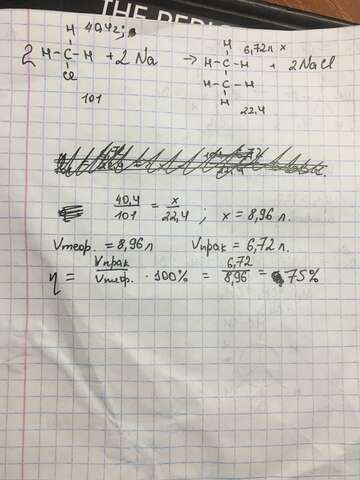 THE PERI
H 40,4г; H 6,72л x
2 H-C-H + 2Na → H-C-H + 2NaCl
Cl H-C-H
H
101 22,4
40,4/101 = x/22,4 ; x = 8,96 л.
Vтеор. = 8,96 л Vпрак = 6,72 л.
η = Vпрак/Vтеор. · 100% = 6,72/8,96 = 75%